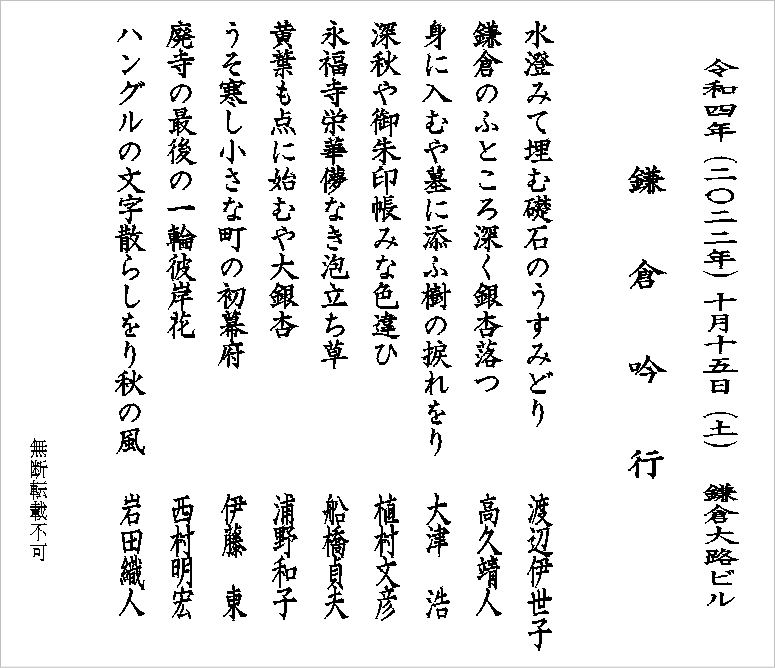 令和四年(二〇二二年)十月十五日(土) 鎌倉大路ビル
鎌倉吟行
水澄みて埋む礎石のうすみどり 渡辺伊世子
鎌倉のふところ深く銀杏落つ 高久靖人
身に入むや墓に添ふ樹の捩れをり 大津 浩
深秋や御朱印帳みな色違ひ 植村文彦
永福寺栄華儚なき泡立ち草 船橋貞夫
黄葉も点に始むや大銀杏 浦野和子
うそ寒し小さな町の初幕府 伊藤 東
廃寺の最後の一輪彼岸花 西村明宏
ハングルの文字散らしをり秋の風 岩田織人
無断転載不可